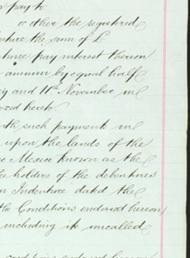 pay to
or other the registered
the sum of £
pay interest thereon
annum by equal half
and 11th November in
hereto
such payment in
upon the lands of the
Mexico known as the
holders of the debentures
Indenture dated the
the Conditions endorsed hereon
including its uncalled